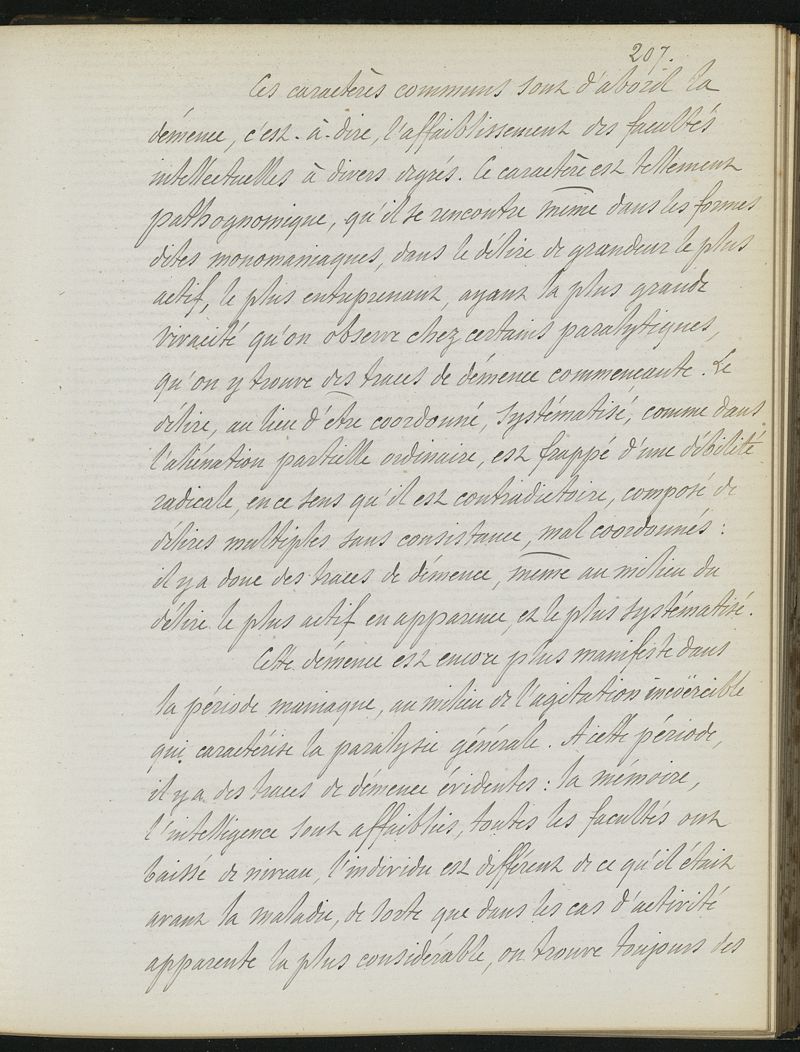 207.
Ces caractères communs sont d'abord la
démence, c'est-à-dire, l'affaiblissement des facultés
intellectuelles à divers degrés. Ce caractère est tellement
pathognomique, qu'il se rencontre même dans les formes
dites monomaniaques, dans le délire de grandeur le plus
actif, le plus entreprenant, ayant la plus grande
vivacité qu'on observe chez certains paralytiques,
qu'on y trouve des traces de démence commencante. Le
délire, au lieu d'être coordonné, systématisé, comme dans
l'aliénation partielle ordinaire, est frappé d'une débilité
radicale, en ce sens qu'il est contradictoire, composé de
délires multiples sans consistance, mal coordonnés :
il y a donc des traces de démence, même au milieu du
délire le plus actif en apparence, et le plus systématisé.
Cette démence est encore plus manifeste dans
la période maniaque, au milieu de l'agitation incoërcible
qui caractérise la paralysie générale. A cette période,
il y a des traces de démence évidentes : la mémoire,
l'intelligence sont affaiblies, toutes les facultés ont
baissé de niveau, l'individu est différent de ce qu'il était
avant la maladie, de sorte que dans les cas d'activité
apparente la plus considérable, on trouve toujours des